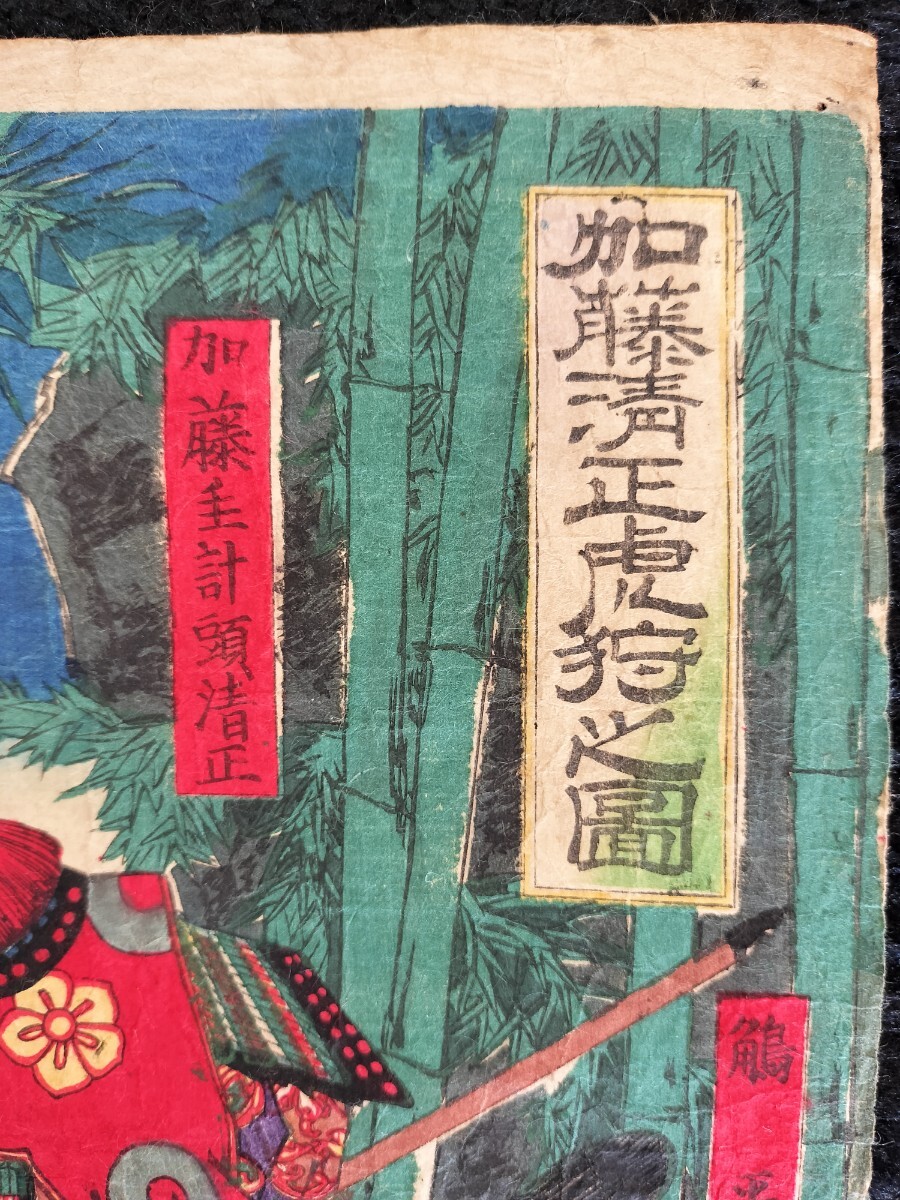 加藤清正虎狩之圖
加藤主計頭清正